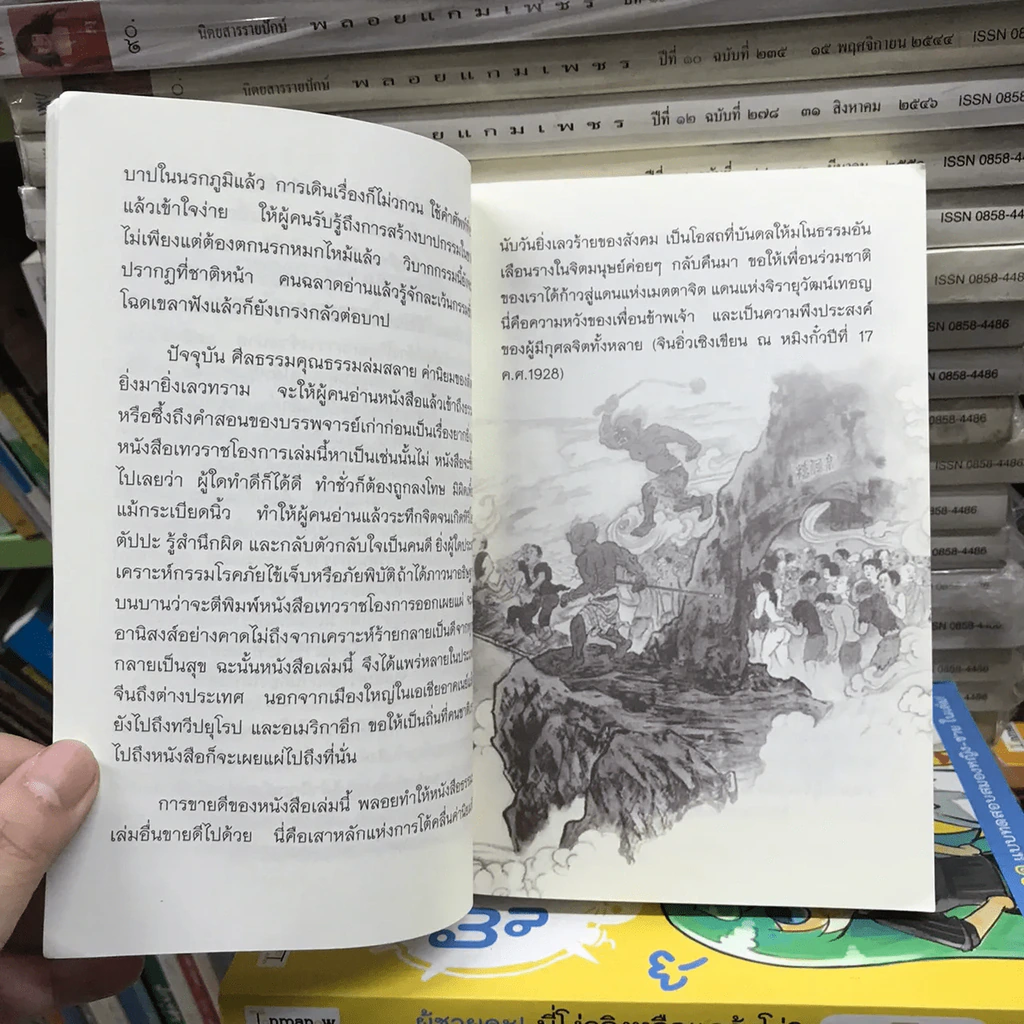 นิตยสารรายปักษ์ พลอยแกมเพชร
นิตยสารรายปักษ์ พลอยแกมเพชร ปีที่ ๑๐ ฉบับที่ ๒๓๕ ๑๕ พฤศจิกายน ๒๕๔๔ ISSN 08
ยแกมเพชร ปีที่ ๑๒ ฉบับที่ ๒๗๘ ๓๑ สิงหาคม ๒๕๔๖ ISSN 0858-4
ISSN 0858-44
ISSN 0858-44
ISSN 0858-4486
0858-4486
0858-4486
858-4486
0858-4486
8-4486
0858-4486
บาปในนรกภูมิแล้ว การเดินเรื่องก็ไม่วกวน ใช้คำศัพท์
แล้วเข้าใจง่าย ให้ผู้คนรับรู้ถึงการสร้างบาปกรรม
ไม่เพียงแต่ต้องตกนรกหมกไหม้แล้ว วิบากกรรมนี้
ปรากฏที่ชาติหน้า คนฉลาดอ่านแล้วรู้จักละเว้นกรรม
โฉดเขลาฟังแล้วก็ยังเกรงกลัวต่อบาป
ปัจจุบัน ศีลธรรมคุณธรรมล่มสลาย ค่านิยมของ
ยิ่งมายิ่งเลวทราม จะให้ผู้คนอ่านหนังสือแล้วเข้าถึง
หรือซึ้งถึงคำสอนของบรรพจารย์เก่าก่อนเป็นเรื่องยาก
หนังสือเทวราชโองการเล่มนี้หาเป็นเช่นนั้นไม่ หนังสือ
ไปเลยว่า ผู้ใดทำดีก็ได้ดี ทำชั่วก็ต้องถูกลงโทษ มิผิด
แม้กระเบียดนิ้ว ทำให้ผู้คนอ่านแล้วระทึกจิตจนเกิด
ตัปปะ รู้สำนึกผิด และกลับตัวกลับใจเป็นคนดี ยิ่งผู้ใด
เคราะห์กรรมโรคภัยไข้เจ็บหรือภัยพิบัติถ้าได้ภาวนา
บนบานว่าจะตีพิมพ์หนังสือเทวราชโองการออกเผยแผ่
อานิสงส์อย่างคาดไม่ถึงจากเคราะห์ร้ายกลายเป็นดี
กลายเป็นสุข ฉะนั้นหนังสือเล่มนี้ จึงได้แพร่หลายใน
จีนถึงต่างประเทศ นอกจากเมืองใหญ่ในเอเชียอาคเนย์
ยังไปถึงทวีปยุโรป และอเมริกาอีก ขอให้เป็นถิ่นที่คน
ไปถึงหนังสือก็จะเผยแผ่ไปถึงที่นั่น
การขายดีของหนังสือเล่มนี้ พลอยทำให้หนังสือธรรม
เล่มอื่นขายดีไปด้วย นี่คือเสาหลักแห่งการโต้คลื่นค่านิยม
นับวันยิ่งเลวร้ายของสังคม เป็นโอสถที่บันดลให้มโนธรรมอัน
เลือนรางในจิตมนุษย์ค่อยๆ กลับคืนมา ขอให้เพื่อนร่วมชาติ
ของเราได้ก้าวสู่แดนแห่งเมตตาจิต แดนแห่งจิรายุวัฒน์เทอญ
นี่คือความหวังของเพื่อนข้าพเจ้า และเป็นความพึงประสงค์
ของผู้มีกุศลจิตทั้งหลาย (จินอิ่วเซิงเขียน ณ หมิงกั๋วปีที่ 17
ค.ศ.1928)